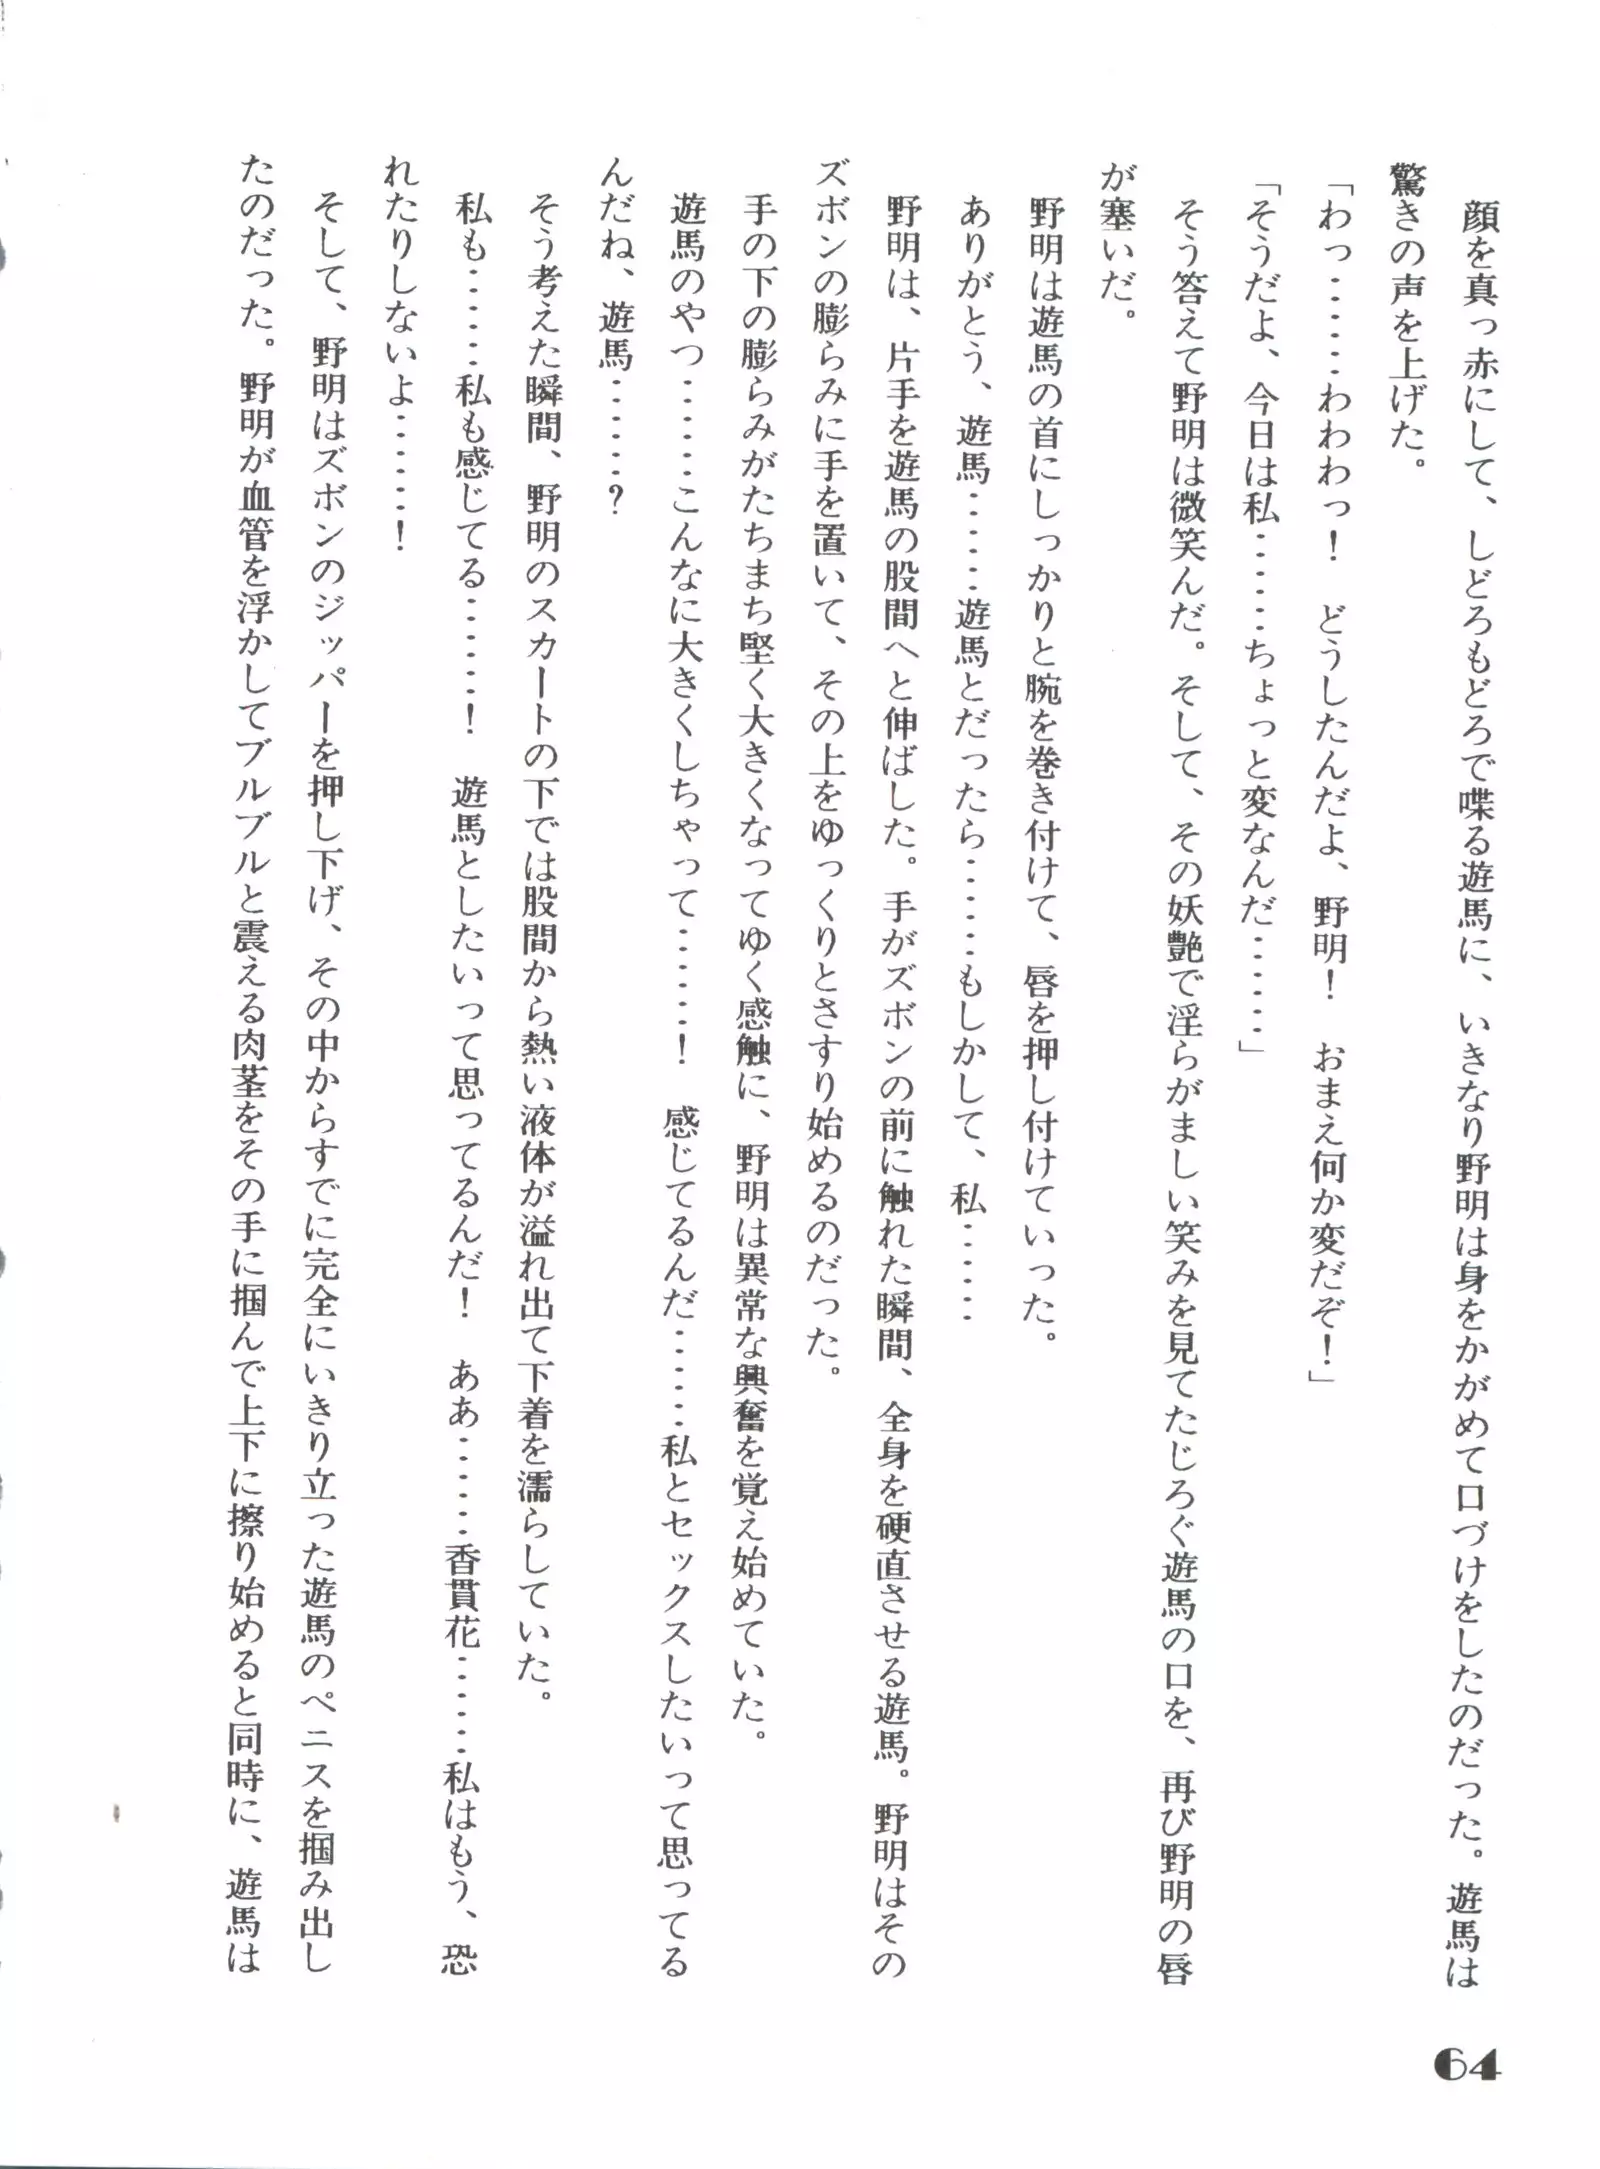 顔を真っ赤にして、しどろもどろで喋る遊馬に、いきなり野明は身をかがめて口づけをしたのだった。遊馬は
驚きの声を上げた。
「わっ……わわわっ！　どうしたんだよ、野明！　おまえ何か変だぞ！」
「そうだよ、今日は私……ちょっと変なんだ……」
そう答えて野明は微笑んだ。そして、その妖艶で淫らがましい笑みを見てたじろぐ遊馬の口を、再び野明の唇
が塞いだ。
野明は遊馬の首にしっかりと腕を巻き付けて、唇を押し付けていった。
ありがとう、遊馬……遊馬とだったら……もしかして、私……
野明は、片手を遊馬の股間へと伸ばした。手がズボンの前に触れた瞬間、全身を硬直させる遊馬。野明はその
ズボンの膨らみに手を置いて、その上をゆっくりとさすり始めるのだった。
手の下の膨らみがたちまち堅く大きくなってゆく感触に、野明は異常な興奮を覚え始めていた。
遊馬のやつ……こんなに大きくしちゃって……！　感じてるんだ……私とセックスしたいって思ってる
んだね、遊馬……？
そう考えた瞬間、野明のスカートの下では股間から熱い液体が溢れ出て下着を濡らしていた。
私も……私も感じてる……！　遊馬としたいって思ってるんだ！　ああ……香貫花……私はもう、恐
れたりしないよ……！
そして、野明はズボンのジッパーを押し下げ、その中からすでに完全にいきり立った遊馬のペニスを掴み出し
たのだった。野明が血管を浮かしてブルブルと震える肉茎をその手に掴んで上下に擦り始めると同時に、遊馬は
64